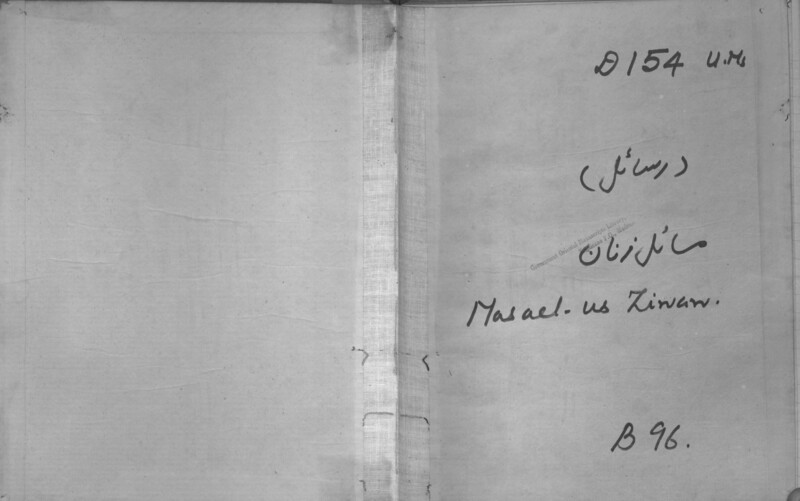 D 154 U.Ms
(رسائل)
مسائل زنان
Masael-us Zinan.
B 96.